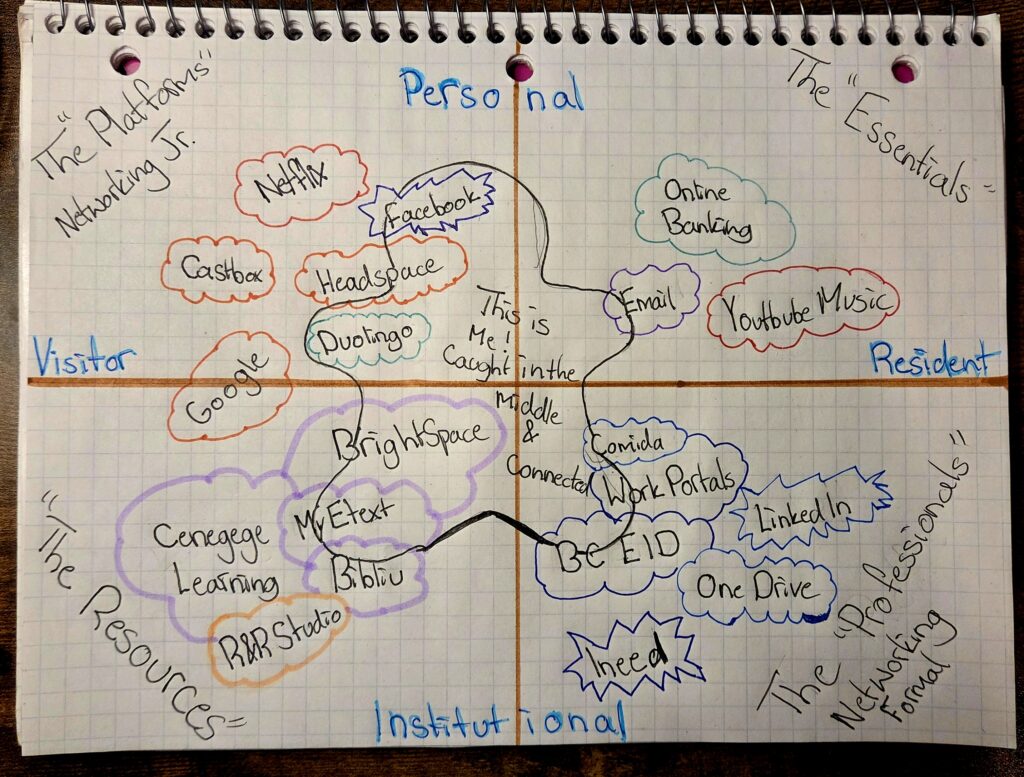 "The Platforms"
Networking Jr.
Personal
The "Essentials"
Netflix
Facebook
Online
Banking
Castbox
Headspace
Email
Youtbube Music
Duolingo
This is
Me!
Caught in the
Middle
&
Connected
Visitor
Resident
Google
BrightSpace
Comida
Work Portals
LinkedIn
MyEtext
Cenegege
Learning
Bibliu
BC EID
One Drive
R&RStudio
Ineed
"The Resources"
The "Professionals"
Networking
Formal
Institutional